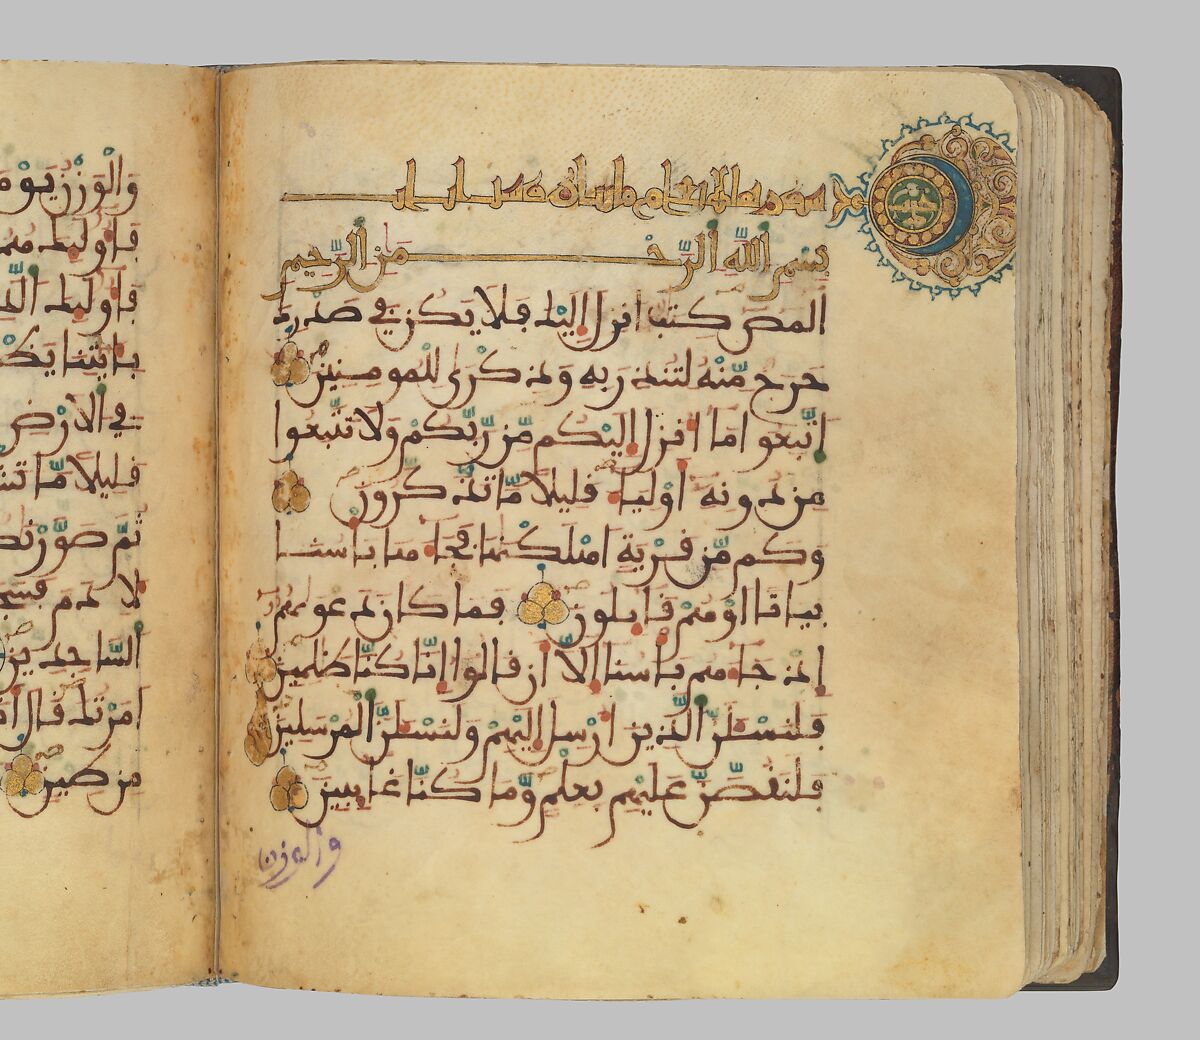 سورة
بسم الله الرحمن الرحيم
المص كتب انزل اليك فلا يكن في صدرك
حرج منه لتنذر به وذكرى للمومنين
اتبعوا ما انزل اليكم من ربكم ولا تتبعوا
من دونه اولياء قليلا ما تذكرون
وكم من قرية اهلكنها فجاءها باسنا
بياتا او هم قايلون فما كان دعويهم
اذ جاءهم باسنا الا ان قالوا انا كنا ظلمين
فلنسئلن الذين ارسل اليهم ولنسئلن المرسلين
فلنقصن عليهم بعلم وما كنا غايبين
والوزن
والوزن يوم
فاوليك هم
فاوليك
بايتنا
في الارض
قليلا ما
ثم
لادم
الساجدين
امرتك قال
من طين